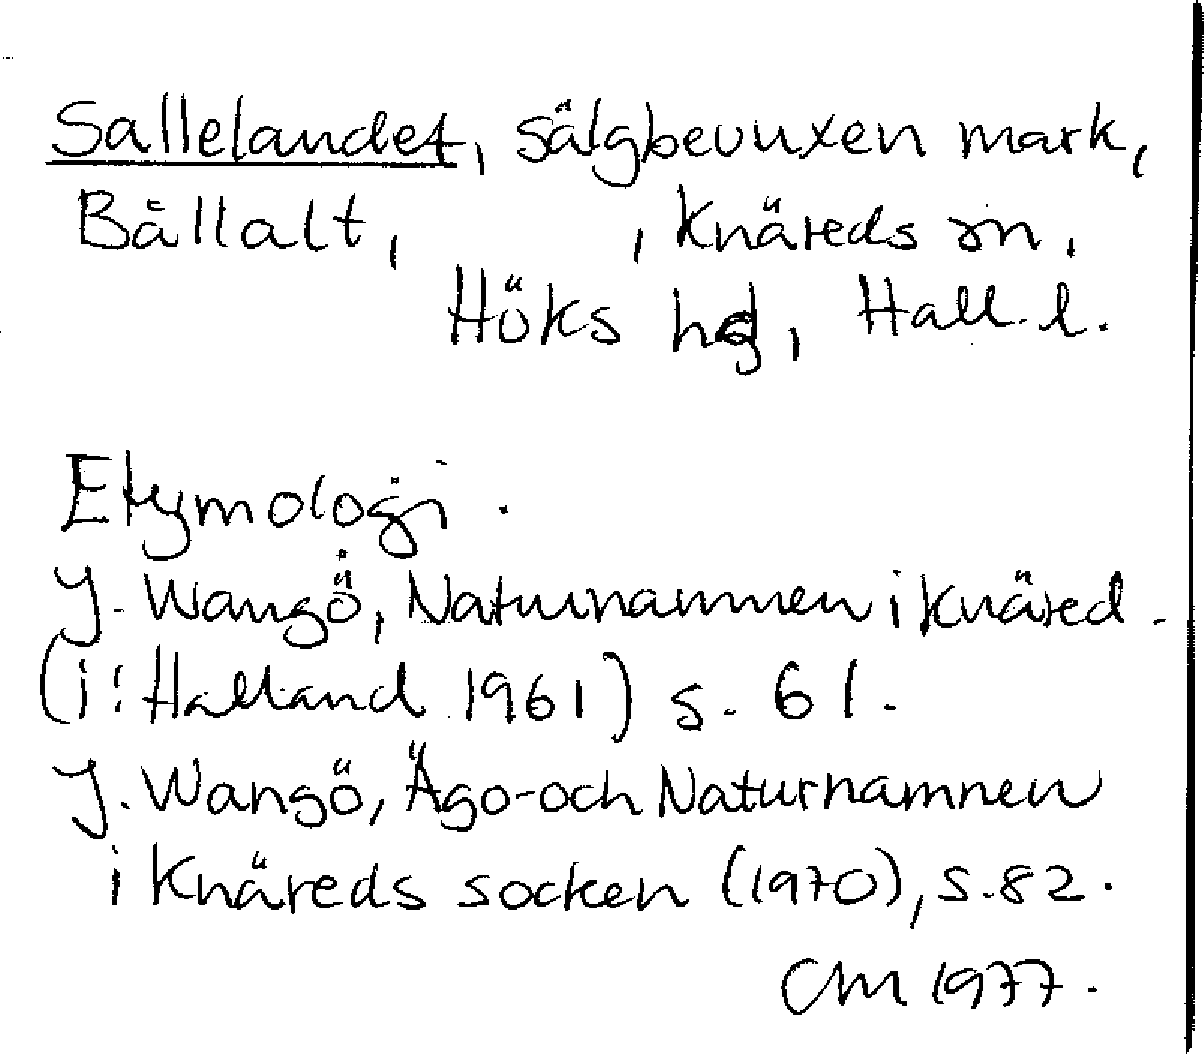 Sallelandet, sälgbevuxen mark,
Bållalt, , Knäreds sn,
Höks hd, Hall. l.
Etymologi.
J. Wangö, Naturnamnen i Knäred.
(i: Halland 1961) s. 61.
J. Wangö, Ägo- och Naturnamnen
i Knäreds socken (1970), s. 82.
CM 1977.